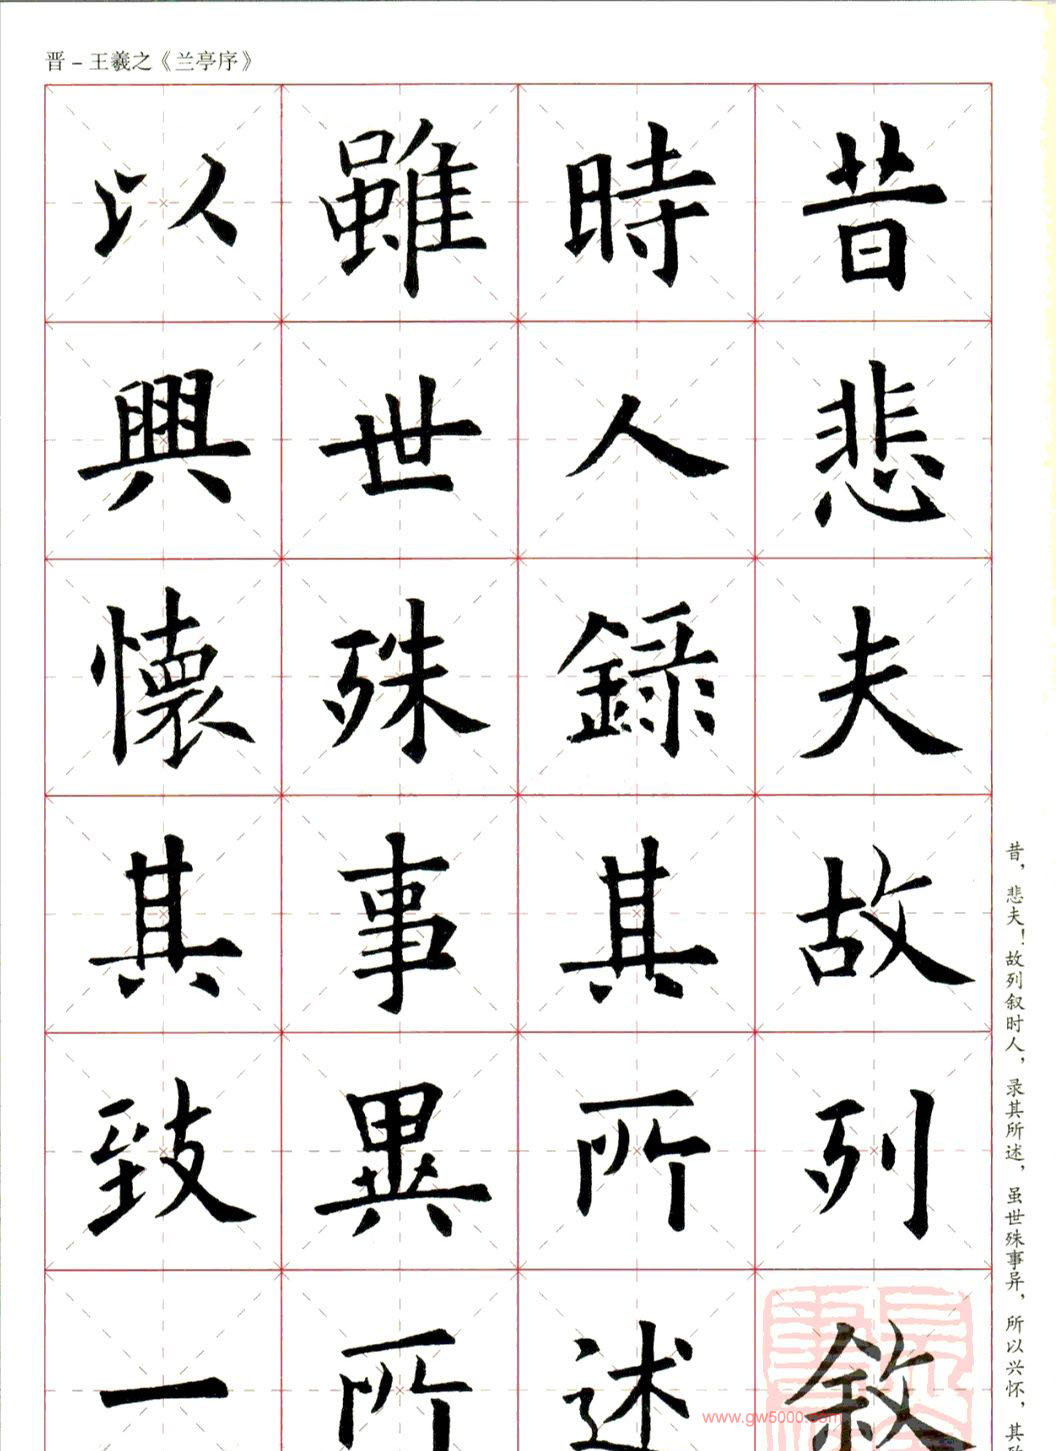 晋－王羲之《兰亭序》
昔悲夫故列敘
時人錄其所述
雖世殊事異所
以興懷其致一
昔，悲夫！故列叙时人，录其所述，虽世殊事异，所以兴怀，其致
www.gw5000.com